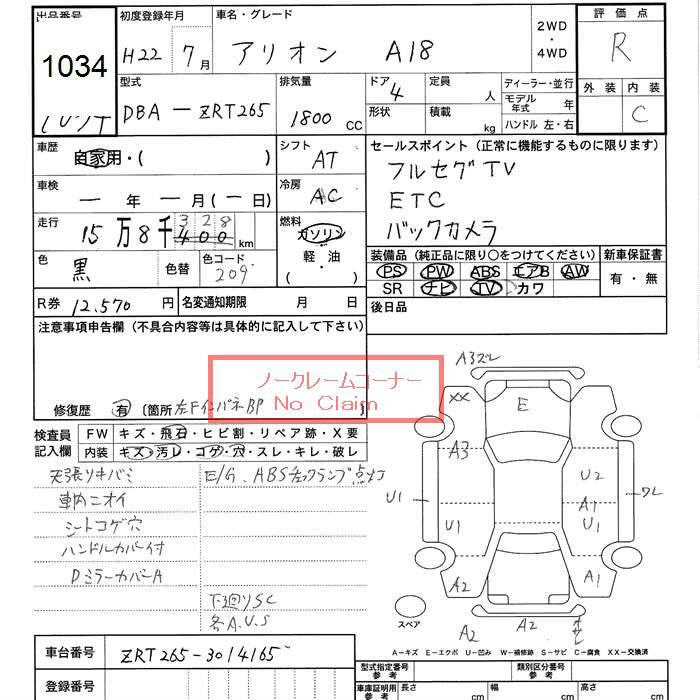 出品番号 初度登録年月 車名・グレード 2WD・4WD 評価点
1034 H22 7月 アリオン A18 R
型式 排気量 ドア 4 定員 人 ディーラー・並行 外装 内装
DBA-ZRT265 1800 CC 形状 積載 kg モデル年式 年 C
ハンドル 左・右
車歴 自家用・( ) シフト AT セールスポイント(正常に機能するものに限ります)
フルセグTV
車検 ー年ー月(ー日) 冷房 AC ETC
走行 15万8千400 328 km 燃料 ガソリン バックカメラ
軽・油
( )
色 黒 色替 色コード 209 装備品(純正品に限り〇をつけてください) 新車保証書
PS PW ABS エアB AW 有・無
SR ナビ TV カワ
R券 12,570円 名変通知期限 月 日 後日品
注意事項申告欄(不具合内容等は具体的に記入して下さい)
ノークレームコーナー
No Claim
修復歴 有 〔箇所 左FインパネBP 〕
検査員記入欄 FW キズ・飛石・ヒビ割・リペア跡・X要
内装 キズ・汚レ・コゲ・穴・スレ・キレ・破レ
天張リキバミ E/G.ABSチェックランプ点灯
車内ニオイ
シートコゲ穴
ハンドルカバー付
DミラーカバーA
下廻りSC
各A.U.S
A3ズレ
XX E
A3 U2
U1 U1 A1 U1 ワレ
A2 A1
スペア A2 A2
A-キズ E-エクボ U-凹み W-補修跡 S-サビ C-腐食 XX-交換済
車台番号 ZRT265-3014165 型式指定番号 参考 類別区分番号 参考
登録番号 車庫証明用 参考 長さ cm 幅 cm 高さ cm